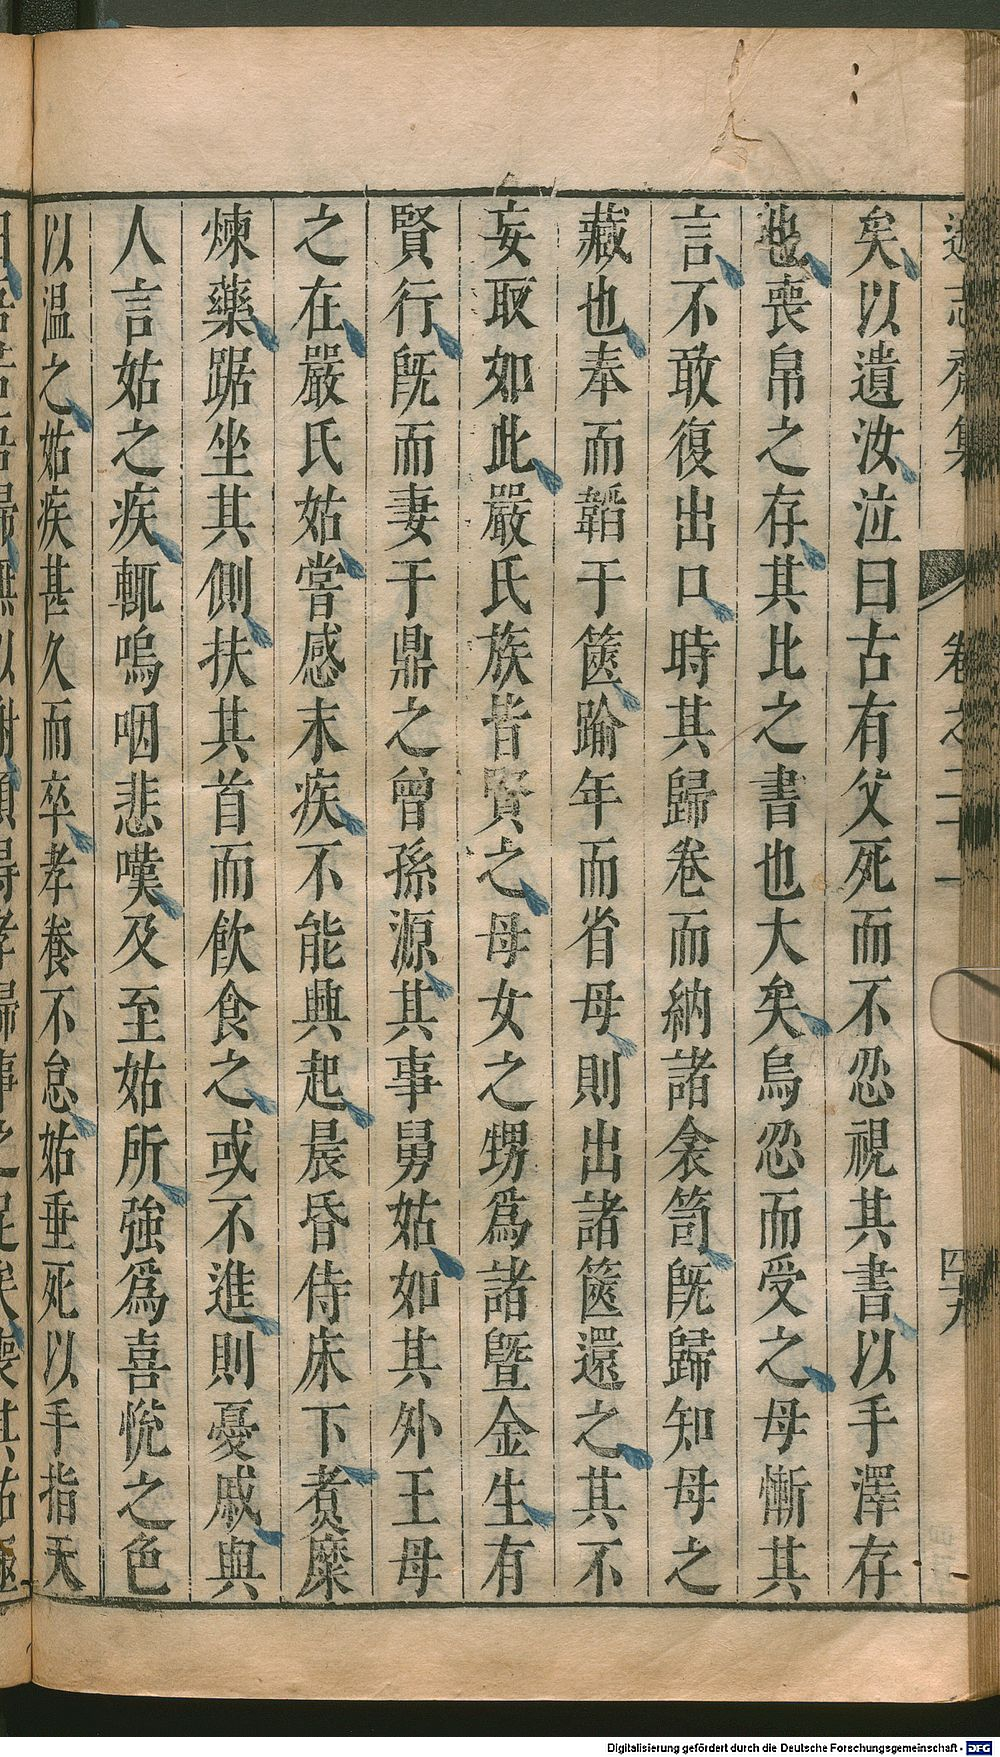 遜志齋集 卷之二十一 四十九
矣以遺汝泣曰古有父死而不忍視其書以手澤存
也喪帛之存其比之書也大矣烏忍而受之母慚其
言不敢復出口時其歸卷而納諸衾笥既歸知母之
藏也奉而韜于篋踰年而省母則出諸篋還之其不
妄取如此嚴氏族昔賢之母女之甥爲諸暨金生有
賢行既而妻于鼎之曾孫源其事舅姑如其外王母
之在嚴氏姑嘗感末疾不能興起晨昏侍床下煮糜
煉藥踞坐其側扶其首而飲食之或不進則憂戚與
人言姑之疾輒嗚咽悲嘆及至姑所強爲喜悅之色
以温之姑疾甚久而卒孝養不怠姑垂死以手指天
Digitalisierung gefördert durch die Deutsche Forschungsgemeinschaft - DFG